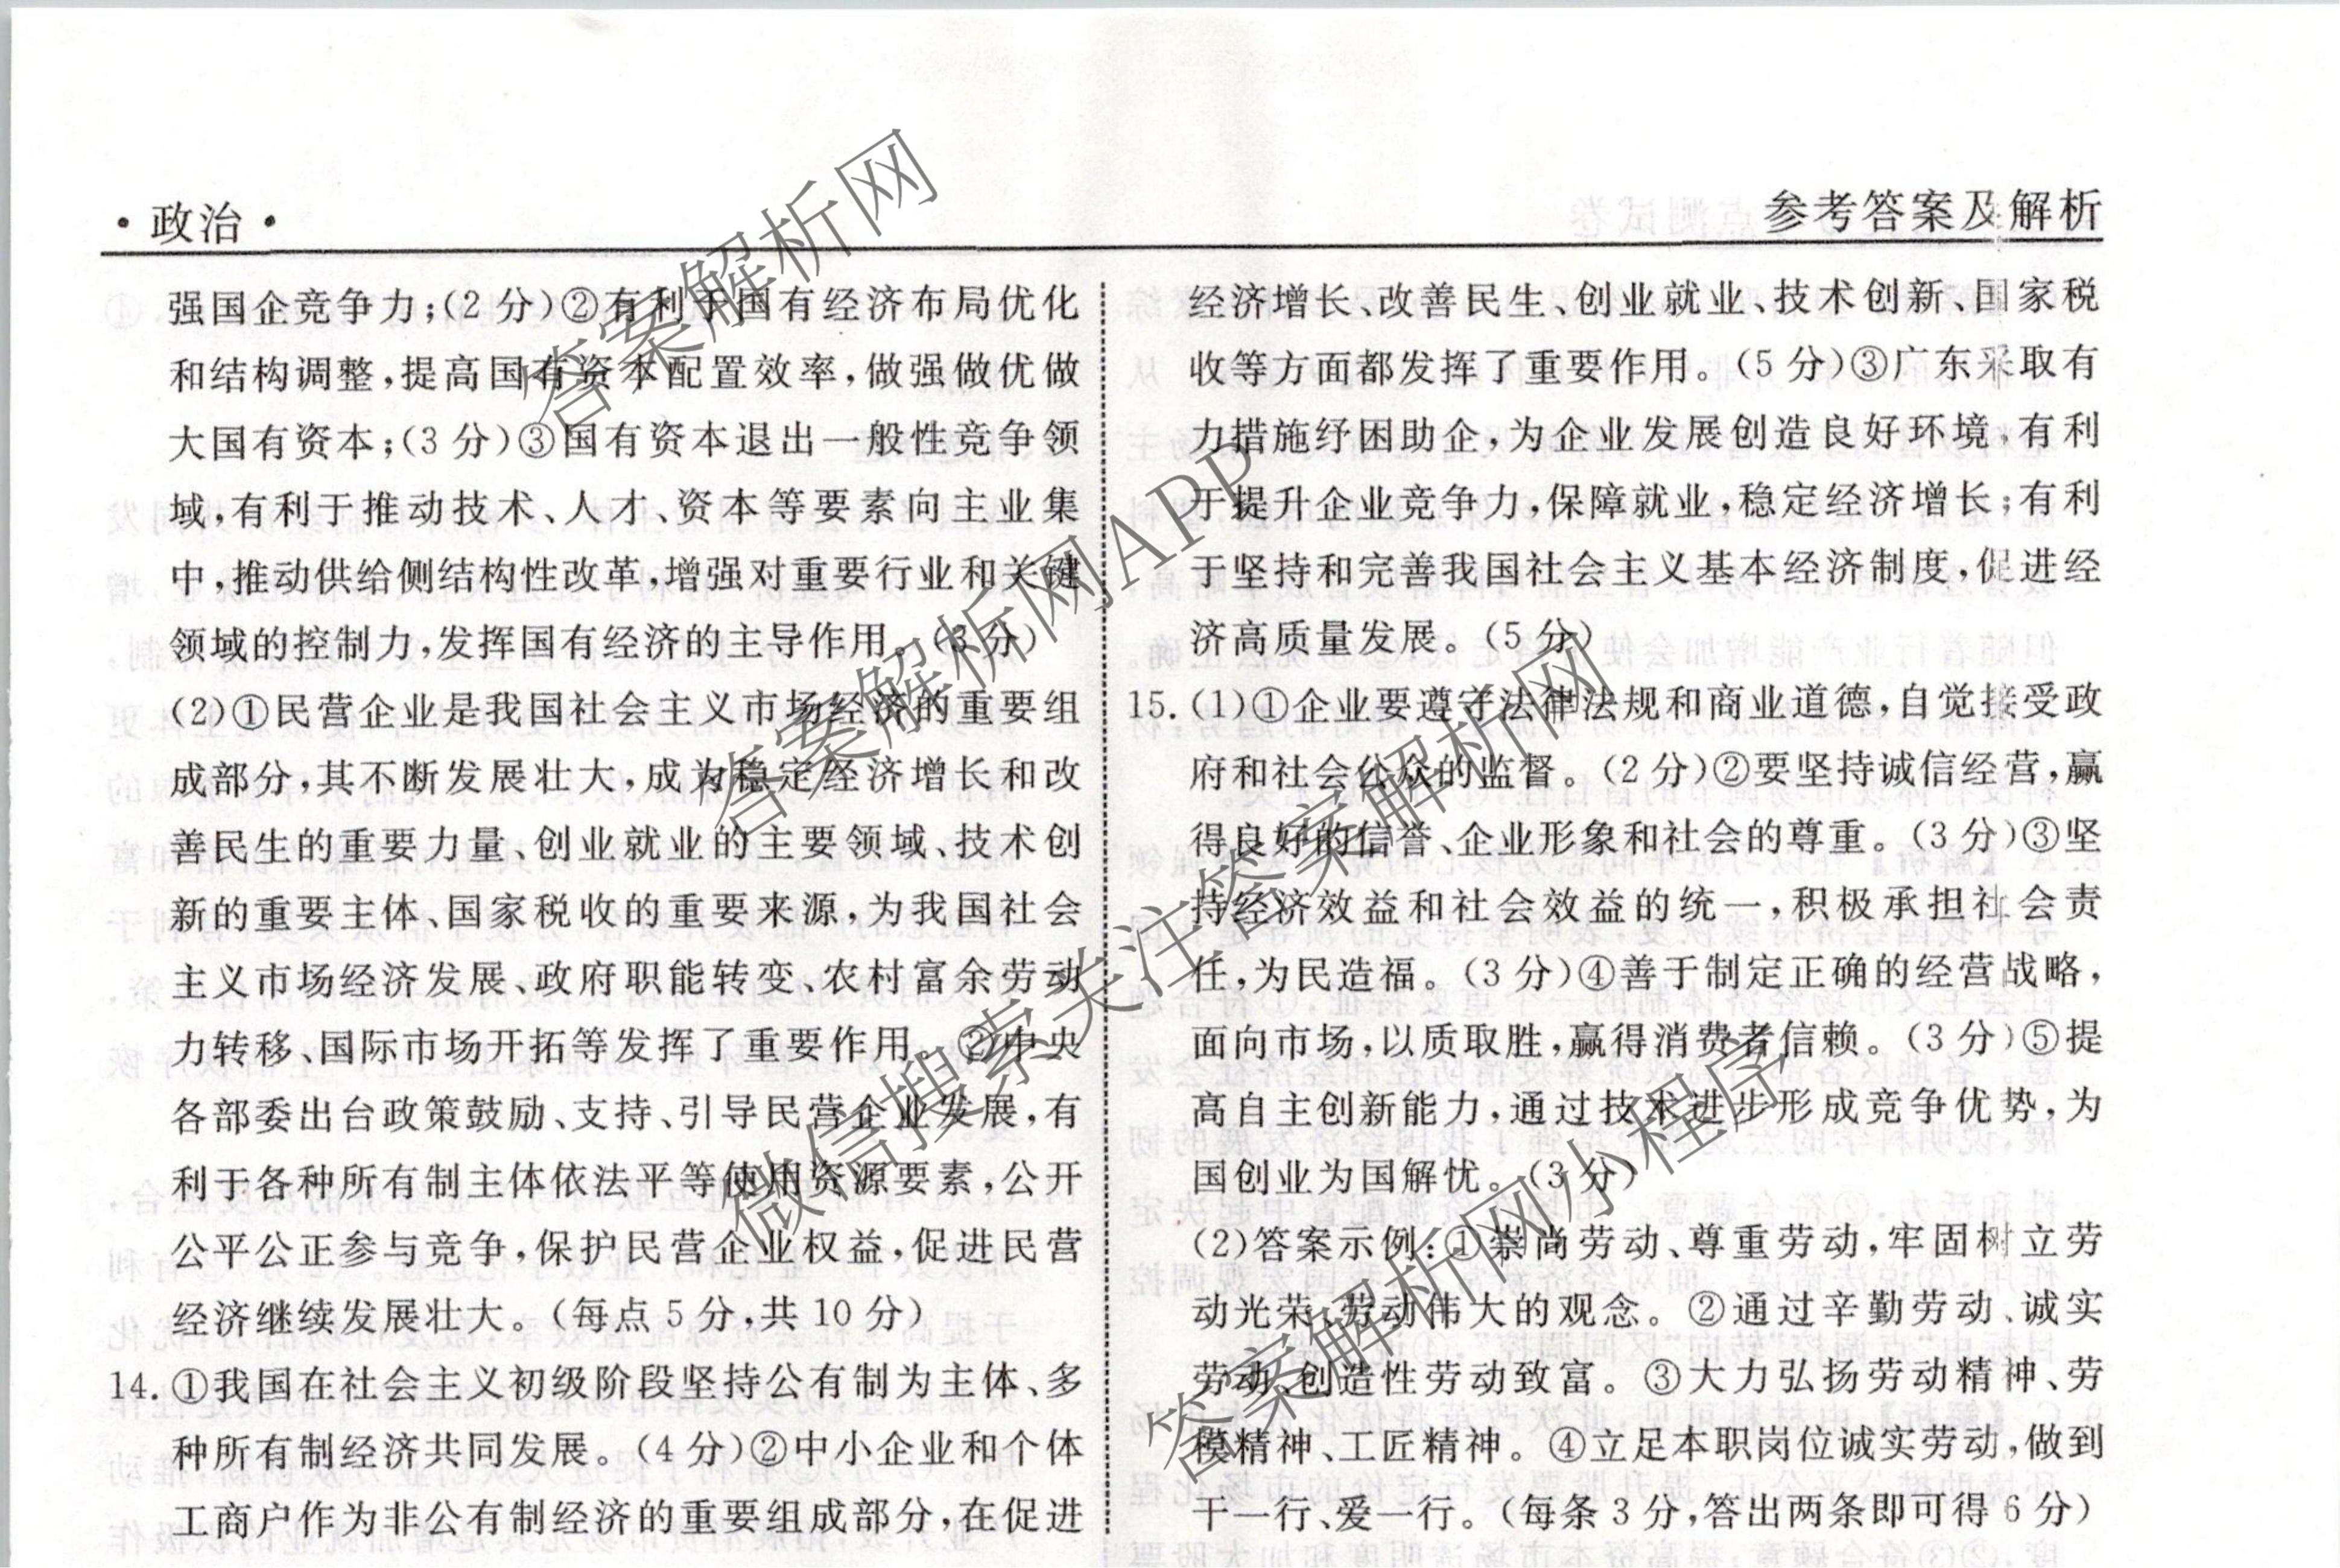 ·政治·
参考答案及解析
强国企竞争力;(2分)②有利于国有经济布局优化
和结构调整,提高国有资本配置效率,做强做优做
大国有资本;(3分)③国有资本退出一般性竞争领
域,有利于推动技术、人才、资本等要素向主业集
中,推动供给侧结构性改革,增强对重要行业和关键
领域的控制力,发挥国有经济的主导作用。(3分)
(2)①民营企业是我国社会主义市场经济的重要组
成部分,其不断发展壮大,成为稳定经济增长和改
善民生的重要力量、创业就业的主要领域、技术创
新的重要主体、国家税收的重要来源,为我国社会
主义市场经济发展、政府职能转变、农村富余劳动
力转移、国际市场开拓等发挥了重要作用。②中央
各部委出台政策鼓励、支持、引导民营企业发展,有
利于各种所有制主体依法平等使用资源要素,公开
公平公正参与竞争,保护民营企业权益,促进民营
经济继续发展壮大。(每点5分,共10分)
14.①我国在社会主义初级阶段坚持公有制为主体、多
种所有制经济共同发展。(4分)②中小企业和个体
工商户作为非公有制经济的重要组成部分,在促进
经济增长、改善民生、创业就业、技术创新、国家税
收等方面都发挥了重要作用。(5分)③广东采取有
力措施纾困助企,为企业发展创造良好环境,有利
于提升企业竞争力,保障就业,稳定经济增长;有利
于坚持和完善我国社会主义基本经济制度,促进经
济高质量发展。(5分)
15.(1)①企业要遵守法律法规和商业道德,自觉接受政
府和社会公众的监督。(2分)②要坚持诚信经营,赢
得良好的信誉、企业形象和社会的尊重。(3分)③坚
持经济效益和社会效益的统一,积极承担社会责
任,为民造福。(3分)④善于制定正确的经营战略,
面向市场,以质取胜,赢得消费者信赖。(3分)⑤提
高自主创新能力,通过技术进步形成竞争优势,为
国创业为国解忧。(3分)
(2)答案示例:①崇尚劳动、尊重劳动,牢固树立劳
动光荣、劳动伟大的观念。②通过辛勤劳动、诚实
劳动、创造性劳动致富。③大力弘扬劳动精神、劳
模精神、工匠精神。④立足本职岗位诚实劳动,做到
干一行、爱一行。(每条3分,答出两条即可得6分)
答案解析网
答案解析网APP
微信搜索关注:答案解析网
答案解析网小程序